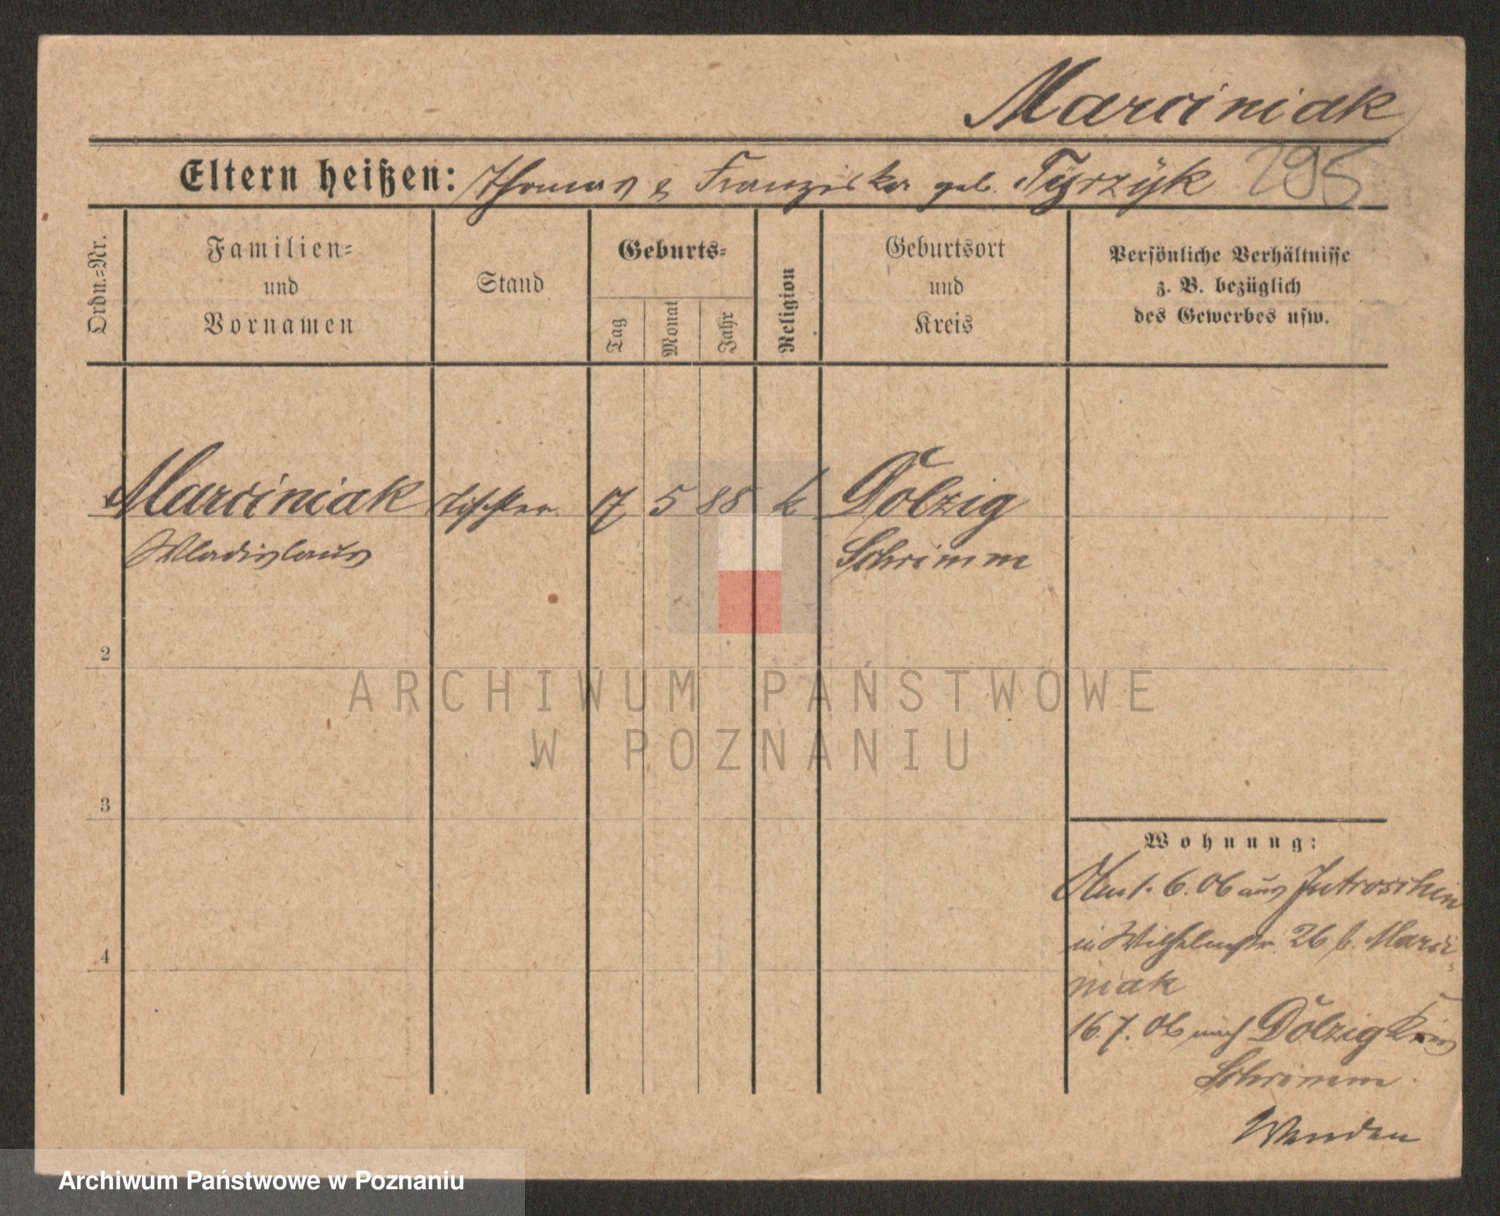 Marciniak
Eltern heißen: Thomas & Franziska geb. Tyrzÿk 295
Ordn.=Nr.
Familien=
und
Vornamen
Stand
Geburts=
Tag
Monat
Jahr
Religion
Geburtsort
und
Kreis
Persönliche Verhältnisse
z. B. bezüglich
des Gewerbes usw.
Marciniak Tischler 7 5 88 k Dolzig
Wladislaus Schrimm
2
3
4
Wohnung:
6. 06 aus Jutroschin
in Wilhelmstr. 26 b. Marci-
niak
16. 7. 06 nach Dolzig Kreis
Schrimm
Wenden
ARCHIWUM PAŃSTWOWE
W POZNANIU
Archiwum Państwowe w Poznaniu